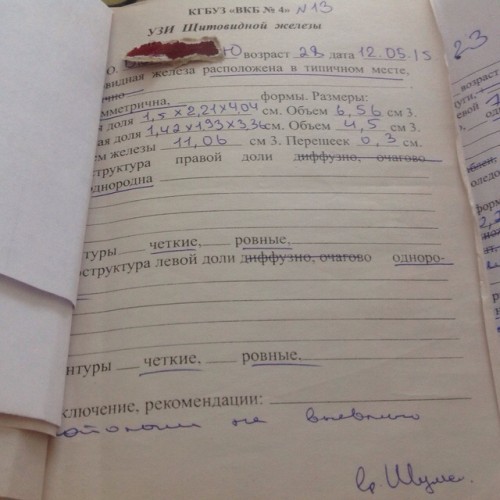 КГБУЗ «ВКБ № 4» №13
УЗИ Щитовидной железы
О. Ю возраст 28 дата 12.05.15
видная железа расположена в типичном месте,
ично
мметрична, формы. Размеры:
я доля 1,5 x 2,21 x 4,04 см. Объем 6,56 см 3.
ая доля 1,42 x 1,33 x 3,36 см. Объем 4,5 см 3.
ем железы 11,06 см 3. Перешеек 0,3 см.
структура правой доли диффузно, очагово
однородна
нтуры четкие, ровные,
структура левой доли диффузно, очагово одноро-
нтуры четкие, ровные,
ключение, рекомендации:
не выявлено
вр.
23
возраст